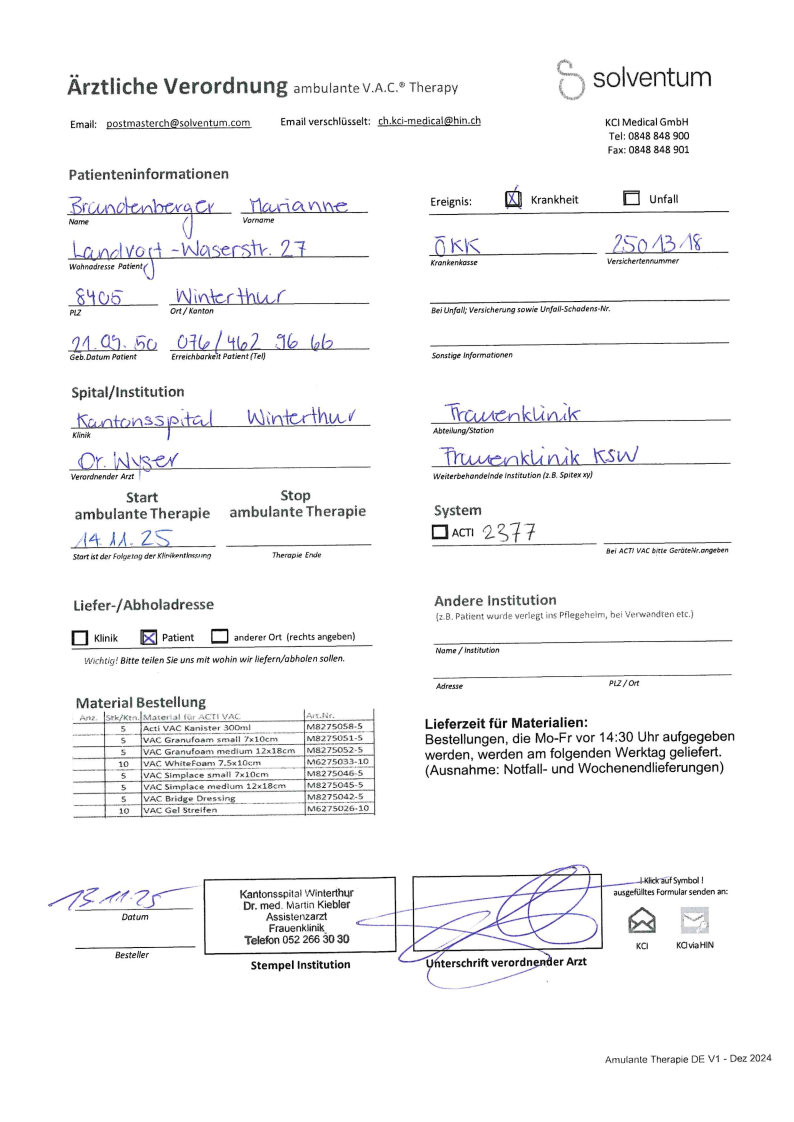 Ärztliche Verordnung ambulante V.A.C.® Therapy
solventum
Email: postmasterch@solventum.com Email verschlüsselt: ch.kci-medical@hin.ch
KCI Medical GmbH
Tel: 0848 848 900
Fax: 0848 848 901
Patienteninformationen
Brandenberger Marianne
Name Vorname
Landvogt-Waserstr. 27
Wohnadresse Patient
8405 Winterthur
PLZ Ort / Kanton
21.09.50 076/462 96 66
Geb.Datum Patient Erreichbarkeit Patient (Tel)
Ereignis: Krankheit Unfall
ÖKK 250 13 18
Krankenkasse Versichertennummer
Bei Unfall; Versicherung sowie Unfall-Schadens-Nr.
Sonstige Informationen
Spital/Institution
Kantonsspital Winterthur
Klinik
Dr. Wyser
Verordnender Arzt
Frauenklinik
Abteilung/Station
Frauenklinik KSW
Weiterbehandelnde Institution (z.B. Spitex xy)
Start Stop
ambulante Therapie ambulante Therapie
14.11.25
Start ist der Folgetag der Klinikentlassung Therapie Ende
System
ACTI 2377
Bei ACTI VAC bitte GeräteNr.angeben
Liefer-/Abholadresse
Klinik Patient anderer Ort (rechts angeben)
Wichtig! Bitte teilen Sie uns mit wohin wir liefern/abholen sollen.
Andere Institution
(z.B. Patient wurde verlegt ins Pflegeheim, bei Verwandten etc.)
Name / Institution
Adresse PLZ / Ort
Material Bestellung
Anz. Stk/Ktn. Material für ACTI VAC Art.Nr.
5 Acti VAC Kanister 300ml M8275058-5
5 VAC Granufoam small 7x10cm M8275051-5
5 VAC Granufoam medium 12x18cm M8275052-5
10 VAC WhiteFoam 7.5x10cm M6275033-10
5 VAC Simplace small 7x10cm M8275046-5
5 VAC Simplace medium 12x18cm M8275045-5
5 VAC Bridge Dressing M8275042-5
10 VAC Gel Streifen M6275026-10
Lieferzeit für Materialien:
Bestellungen, die Mo-Fr vor 14:30 Uhr aufgegeben
werden, werden am folgenden Werktag geliefert.
(Ausnahme: Notfall- und Wochenendlieferungen)
13.11.25
Datum
Besteller
Kantonsspital Winterthur
Dr. med. Martin Kiebler
Assistenzarzt
Frauenklinik
Telefon 052 266 30 30
Stempel Institution
Unterschrift verordnender Arzt
! Klick auf Symbol !
ausgefülltes Formular senden an:
KCI KCI via HIN
Amulante Therapie DE V1 - Dez 2024